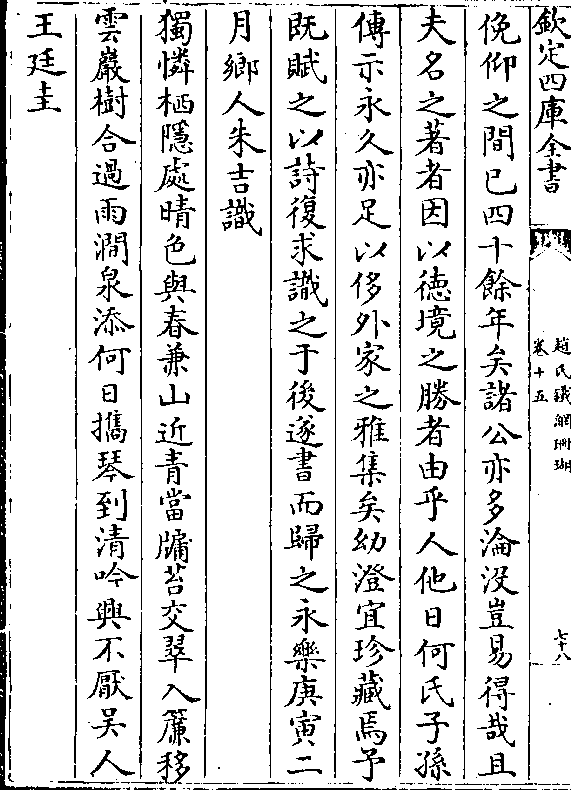 欽定四庫全書
趙氏鐵網珊瑚
卷十五
七十八
俛仰之間已四十餘年矣諸公亦多淪沒豈易得哉且
夫名之著者因以徳境之勝者由乎人他日何氏子孫
傳示永久亦足以侈外家之雅集矣幼澄宜珍藏焉予
既賦之以詩復求識之于後遂書而歸之永樂庚寅二
月鄉人朱吉識
獨憐栖隱處晴色與春兼山近青當牖苔交翠入簾移
雲巖樹合過雨澗泉添何日攜琴到清吟興不厭吴人
王廷圭